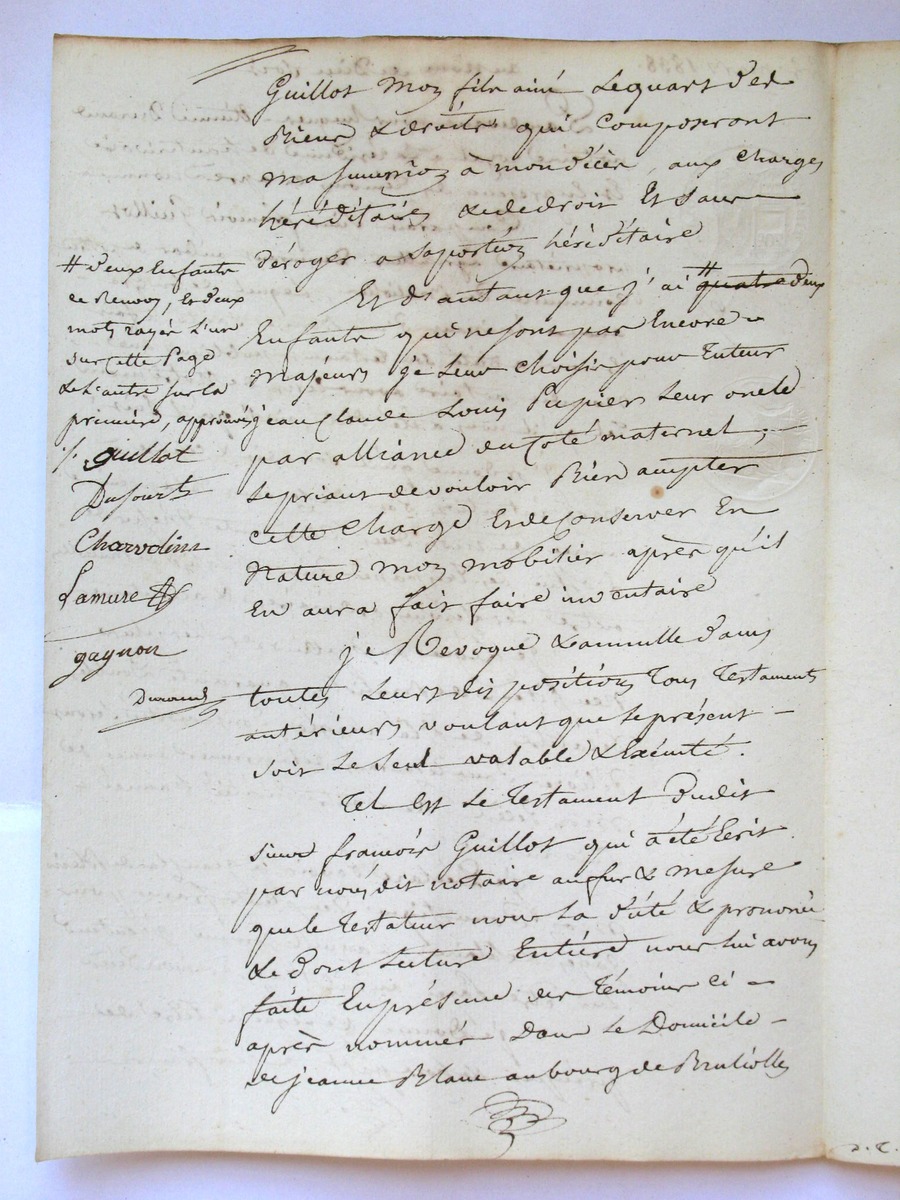 Guillot mon fils ainé le quart des
Biens & droits qui composeront
ma succession à mon décès, aux charges
héréditaires & de droit Et sans
déroger a sa portion héréditaire
Et d'autant que j'ai # quatre deux
Enfants qui ne sont pas Encore
majeurs je leur choisis pour tuteur
jean Claude Louis Pupier leur oncle
par alliance du Coté maternel,
le priant de vouloir Bien accepter
cette Charge Et de Conserver En
Nature mon mobilier après qu'il
En aura fait faire inventaire
je Revoque & annulle dans
toutes leurs dispositions tous testaments
antérieurs voulant que le présent
soit le seul valable & Exécuté.
Tel Est le testament dudit
sieur françois Guillot qui a été Ecrit
par nous dit notaire au fur & mesure
que le testateur nous l'a dicté & prononcé
& dont lecture Entière nous lui avons
faite En présence des témoins ci-
après nommés dans le Domicile
de jeanne Blanc au bourg de Brullioles
# deux Enfants
ce Renvoy, Et deux
mots rayés l'un
sur cette Page
& l'autre sur la
première, approuvés
guillot
Dufourt
Charvolin
Lamure
gaynon
Durand